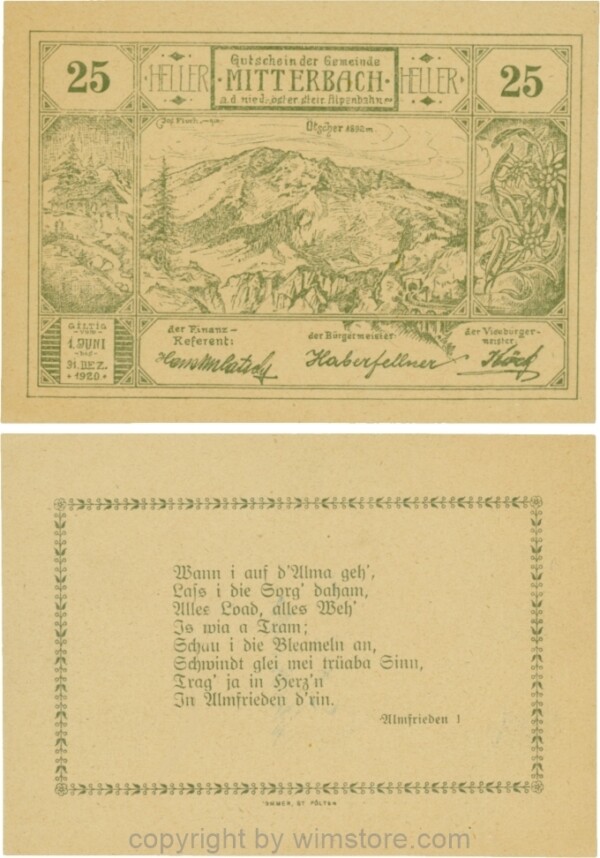 25
HELLER
Gutschein der Gemeinde
MITTERBACH
a.d. niederösterr. steir. Alpenbahn
HELLER
25
Ötscher 1892 m
GILTIG
VOM
1. JUNI
BIS
31. DEZ.
1920
der Finanz-
Referent:
der Bürgermeister:
Haberfellner
der Vizebürger-
meister:
Wann i auf d'Alma geh',
Lass i die Sorg' daham,
Alles Load, alles Weh'
Is wia a Tram;
Schau i die Bleameln an,
Schwindt glei mei trüaba Sinn,
Trag' ja in Herz'n
In Almfrieden d'rin.
Almfrieden!
ST. PÖLTEN
copyright by wimstore.com